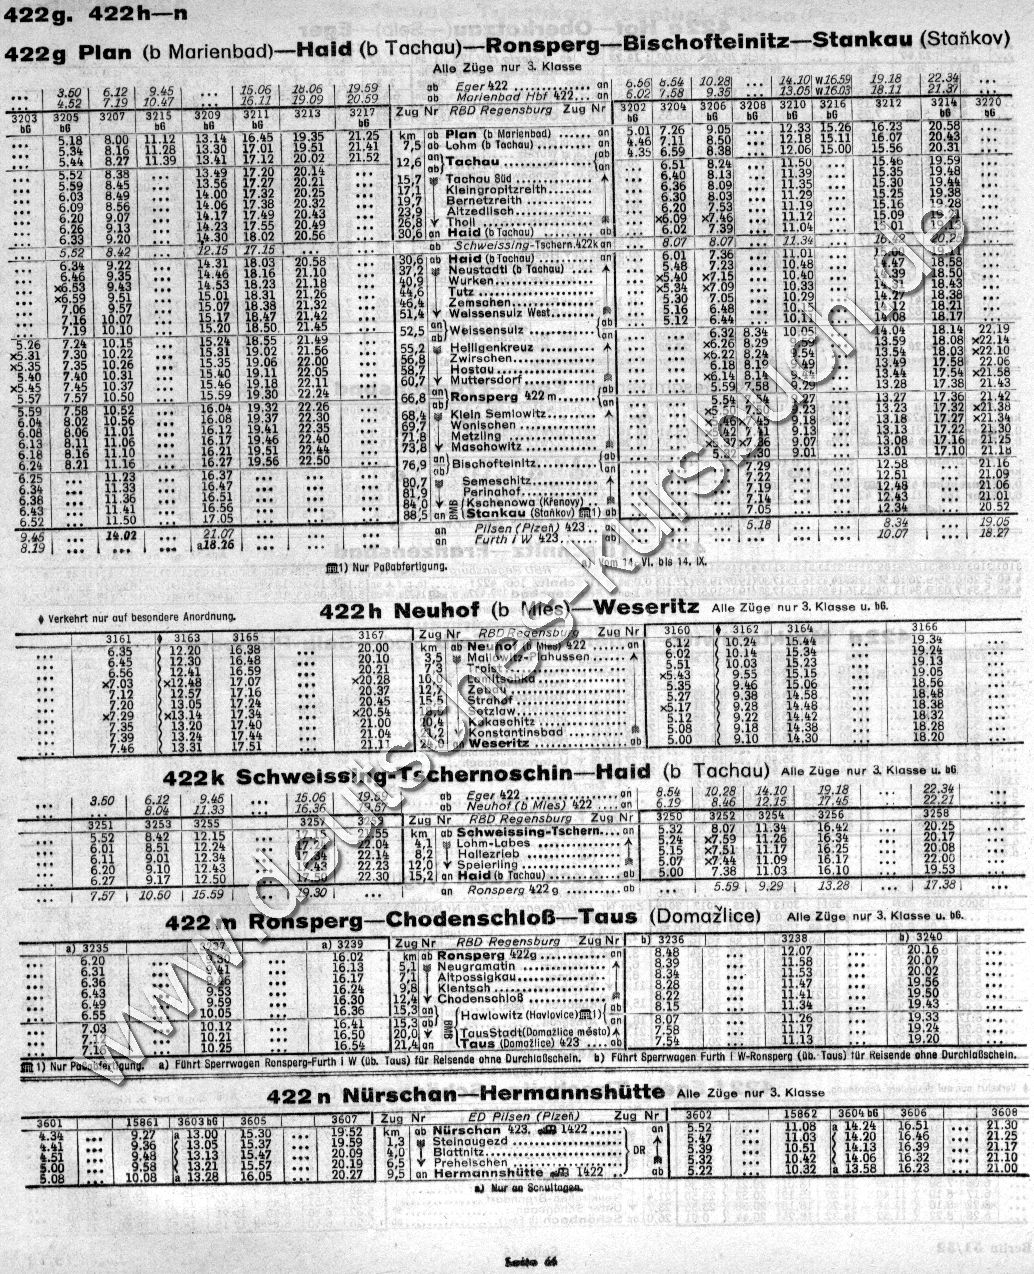 422g. 422h—n
422g Plan (b Marienbad)—Haid (b Tachau)—Ronsperg—Bischofteinitz—Stankau (Staňkov)
Alle Züge nur 3. Klasse
... 3.50 6.12 9.45 ... 15.06 18.06 19.59 ab Eger 422 an 6.56 8.54 10.28 ... 14.10 w16.59 19.18 22.34 ...
... 4.52 7.19 10.47 ... 16.11 19.09 20.59 ab Marienbad Hbf 422 an 6.02 7.58 9.35 ... 13.05 w16.03 18.11 21.37 ...
3203 3205 3207 3215 3209 3211 3213 3217 Zug Nr RBD Regensburg Zug Nr 3202 3204 3206 3208 3210 3216 3212 3214 3220
... 5.18 8.00 11.12 13.14 16.45 19.35 21.25 km ab Plan (b Marienbad) an 5.01 7.26 9.05 ... 12.33 15.26 16.23 20.58 ...
... 5.34 8.16 11.28 13.30 17.01 19.51 21.41 7,5 ab Lohm (b Tachau) ab 4.46 7.11 8.50 ... 12.18 15.11 16.07 20.43 ...
... 5.44 8.27 11.39 13.41 17.12 20.02 21.52 12,6 an Tachau ab 4.35 6.59 8.38 ... 12.06 15.00 15.56 20.31 ...
... 5.52 8.38 ... 13.49 17.20 20.14 ... ab an ... 6.51 8.24 ... 11.50 ... 15.46 19.59 ...
... 5.59 8.45 ... 13.56 17.27 20.21 ... 15,7 Tachau Süd ... 6.40 8.13 ... 11.39 ... 15.35 19.48 ...
... 6.03 8.49 ... 14.00 17.32 20.25 ... 17,1 Kleingropitzreith ... 6.36 8.09 ... 11.35 ... 15.30 19.44 ...
... 6.09 8.56 ... 14.06 17.38 20.32 ... 19,7 Bernetzreith ... 6.30 8.03 ... 11.29 ... 15.25 19.38 ...
... 6.20 9.07 ... 14.17 17.49 20.43 ... 23,9 Altzedlisch ... 6.20 7.53 ... 11.19 ... 15.16 19.28 ...
... 6.26 9.13 ... 14.23 17.55 20.49 ... 26,8 Tholl ... ×6.09 ×7.46 ... 11.12 ... 15.09
... 6.33 9.20 ... 14.30 18.02 20.56 ... 30,6 an Haid (b Tachau) ab ... 6.02 7.39 ... 11.04
... 5.52 8.42 ... 12.15 17.15 ... ab Schweissing-Tschern. 422k an ... 8.07 8.07 ... 11.34
... 6.34 9.22 ... 14.31 18.03 20.58 ... 30,6 ab Haid (b Tachau) an ... 6.01 7.36 ... 11.01 ...
... 6.46 9.35 ... 14.46 18.16 21.10 ... 37,2 Neustadtl (b Tachau) ... 5.48 7.23 ... 10.48 ... 14.47 18.58
... ×6.53 9.43 ... 14.53 18.23 21.18 ... 40,9 Wurken ... ×5.40 ×7.15 ... 10.40 ... 14.39 18.50
... ×6.59 9.51 ... 15.01 18.31 21.26 ... 44,6 Tutz ... ×5.34 ×7.09 ... 10.33 ... 14.31 18.43
... 7.06 9.57 ... 15.07 18.38 21.32 ... 46,4 Zemschen ... 5.30 7.05 ... 10.29 ... 14.27 18.38
... 7.16 10.07 ... 15.17 18.47 21.42 ... 51,4 Weissensulz West ... 5.16 6.48 ... 10.15 ... 14.12 18.21
... 7.19 10.10 ... 15.20 18.50 21.45 ... 52,5 an Weissensulz ab ... 5.12 6.44 ... 10.11 ... 14.08 18.17
5.26 7.24 10.15 ... 15.24 18.55 21.49 ... ab an ... 6.32 8.34 10.05 ... 14.04 18.14 22.19
×5.31 7.30 10.22 ... 15.31 19.02 21.56 ... 55,2 Heiligenkreuz ... ×6.26 8.29 ... 13.59 18.08 ×22.14
×5.35 7.35 10.26 ... 15.35 19.06 22.00 ... 56,8 Zwirschen ... ×6.22 8.24 9.54 ... 13.54 18.03 ×22.10
5.40 7.40 10.31 ... 15.40 19.11 22.05 ... 58,7 Hostau ... 6.18 8.19 9.49 ... 13.49 17.58 22.06
×5.45 7.45 10.37 ... 15.46 19.18 22.11 ... 60,7 Muttersdorf ... ×6.14 8.14 ... 13.44 17.54 ×21.58
5.57 7.57 10.50 ... 15.59 19.30 22.24 ... 66,8 an Ronsperg 422m ab ... 5.59 7.58 9.29 ... 13.28 17.38 21.43
5.59 7.58 10.52 ... 16.04 19.32 22.26 ... ab an ... 5.54 7.54 ... 13.27 17.36 21.42
6.04 8.02 10.56 ... 16.08 19.37 22.30 ... 68,4 Klein Semlowitz ... 9.23 ... 13.23 17.32 ×21.38
6.08 8.06 11.01 ... 16.12 19.41 22.35 ... 69,7 Wonischen ... 9.18 ... 13.18 17.27 ×21.34
6.13 8.11 11.06 ... 16.17 19.46 22.40 ... 71,8 Metzling ... 9.13 ... 13.13 17.22 21.30
6.18 8.16 11.10 ... 16.21 19.51 22.44 ... 73,8 Maschowitz ... 9.07 ... 13.08 17.16 21.25
6.24 8.21 11.16 ... 16.27 19.56 22.50 ... 76,9 an Bischofteinitz ab ... 9.01 ... 13.01 17.10 21.18
6.25 ... 11.23 ... 16.37 ... ab an ... 7.29 ... 12.58 ... 21.16
6.34 ... 11.33 ... 16.47 ... 80,7 Semeschitz ... 7.22 ... 12.51 ... 21.09
6.38 ... 11.36 ... 16.51 ... 81,9 Ferinahof ... 7.19 ... 12.48 ... 21.06
6.43 ... 11.41 ... 16.56 ... 84,0 BMB Kschenowa (Křenovy) ... 7.14 ... 12.43 ... 21.01
6.52 ... 11.50 ... 17.05 ... 88,5 an Stankau (Staňkov) 1) ab ... 7.05 ... 12.34 ... 20.52
9.45 ... 14.02 ... 21.07 ... an Pilsen (Plzeň) 423 ab ... 5.18 ... 8.34 ... 19.05
8.19 ... a18.26 ... an Furth i W 423 ab ... 10.07 ... 18.27
1) Nur Paßabfertigung. a) Vom 14. VI. bis 14. IX.
♦ Verkehrt nur auf besondere Anordnung.
422h Neuhof (b Mies)—Weseritz Alle Züge nur 3. Klasse u. bG.
... 3161 ♦ 3163 3165 ... 3167 Zug Nr RBD Regensburg Zug Nr 3160 ♦ 3162 3164 ... 3166
... 6.35 12.20 16.38 ... 20.00 km ab Neuhof (b Mies) 422 an 6.12 10.24 15.44 ... 19.34
... 6.45 12.30 16.48 ... 20.10 3,5 Mallowitz-Plahussen 6.02 10.14 15.34 ... 19.24
... 6.56 12.41 16.59 ... 20.21 7,3 5.51 10.03 15.23 ... 19.13
... ×7.03 ×12.48 17.07 ... ×20.28 ×5.43 9.55 15.15 ... 19.05
... 7.12 12.57 17.16 ... 20.37 12,7 Zebau 5.35 9.46 15.06 ... 18.56
... 7.20 13.05 17.24 ... 20.45 15,5 Strahof 5.27 9.38 14.58 ... 18.48
... ×7.29 ×13.14 17.34 ... ×20.54 Setzlaw ×5.17 9.28 14.48 ... 18.38
... 7.35 13.20 17.40 ... 21.00 20,4 Kokaschitz 5.12 9.22 14.42 ... 18.32
... 7.39 13.24 17.44 ... 21.04 21,2 Konstantinsbad 5.08 9.18 14.38 ... 18.28
... 7.46 13.31 17.51 ... 21.11 24,0 an Weseritz ab 5.00 9.10 14.30 ... 18.20
422k Schweissing-Tschernoschin—Haid (b Tachau) Alle Züge nur 3. Klasse u. bG
... 3.50 6.12 9.45 ... 15.06 ab Eger 422 an 8.54 10.28 14.10 19.18 ... 22.34
... 8.04 11.33 ... 16.36 ab Neuhof (b Mies) 422 an 6.19 8.46 12.15 17.45 ... 22.21
... 3251 3253 3255 ... 3257 Zug Nr RBD Regensburg Zug Nr 3250 3252 3254 3256 ... 3258
... 5.52 8.42 12.15 ... km ab Schweissing-Tschern. an 5.32 8.07 11.34 16.42 ... 20.25
... 6.01 8.51 12.24 ... 22.04 4,1 Lohm-Labes 5.24 ×7.59 11.26 16.34 ... 20.17
... 6.11 9.01 12.34 ... 22.14 8,2 Hallezrieb 5.15 ×7.51 11.17 16.25 ... 20.08
... 6.20 9.10 12.43 ... 22.23 12,0 Speierling 5.07 ×7.44 11.09 16.17 ... 22.00
... 6.27 9.17 12.50 ... 17.50 22.30 15,2 an Haid (b Tachau) ab 5.00 7.38 11.03 16.10 ... 19.53
... 7.57 10.50 15.59 ... 19.30 an Ronsperg 422g ab ... 5.59 9.29 13.28 ... 17.38
422m Ronsperg—Chodenschloß—Taus (Domažlice) Alle Züge nur 3. Klasse u. bG.
... a) 3235 ... 3237 ... a) 3239 Zug Nr RBD Regensburg Zug Nr b) 3236 ... 3238 ... b) 3240
... 6.20 ... 16.02 km ab Ronsperg 422g an 8.48 ... 12.07 ... 20.16
... 6.31 ... 16.13 5,1 Neugramatin 8.39 ... 11.58 ... 20.07
... 6.36 ... 16.17 7,1 Altpossigkau 8.34 ... 11.53 ... 20.02
... 6.43 ... 9.53 ... 16.24 9,8 Klentsch 8.28 ... 11.47 ... 19.56
... 6.49 ... 9.59 ... 16.30 12,4 Chodenschloß 8.22 ... 11.41 ... 19.50
... 6.55 ... 10.05 ... 16.36 15,3 an Hawlowitz (Havlovice) 1) ab 8.15 ... 11.34 ... 19.43
... 7.03 ... 10.12 ... 16.41 15,3 ab an 8.07 ... 11.26 ... 19.33
... 7.12 ... 10.21 ... 16.50 20,0 BMB Taus Stadt (Domažlice město) 7.58 ... 11.17 ... 19.24
... 7.16 ... 10.25 ... 16.54 21,4 an Taus (Domažlice) 423 ab 7.54 ... 11.13 ... 19.20
1) Nur Paßabfertigung. a) Führt Sperrwagen Ronsperg-Furth i W (üb. Taus) für Reisende ohne Durchlaßschein. b) Führt Sperrwagen Furth i W-Ronsperg (üb. Taus) für Reisende ohne Durchlaßschein.
422n Nürschan—Hermannshütte Alle Züge nur 3. Klasse
3601 ... 15861 3603 bG 3605 ... 3607 Zug Nr ED Pilsen (Plzeň) Zug Nr 3602 ... 15862 3604 bG 3606 ... 3608
4.34 ... 9.27 a 13.00 15.30 ... 19.52 km ab Nürschan 423. 1422 an 5.52 ... 11.08 a 14.24 16.51 ... 21.30
4.41 ... 9.36 13.05 15.37 ... 19.59 1,3 Steinaugezd 5.47 ... 11.03 14.20 16.46 ... 21.25
4.51 ... 9.48 13.13 15.47 ... 20.09 4,0 Blattnitz DR 5.39 ... 10.51 14.13 16.39 ... 21.17
5.00 ... 9.58 13.21 15.57 ... 20.19 6,5 Preheischen 5.32 ... 10.42 14.06 16.32 ... 21.10
5.08 ... 10.08 a 13.28 16.05 ... 20.27 9,5 an Hermannshütte 1422 ab 5.22 ... 10.32 a 13.58 16.23 ... 21.00
a) Nur an Schultagen.
Seite 44
www.deutsches-kursbuch.de